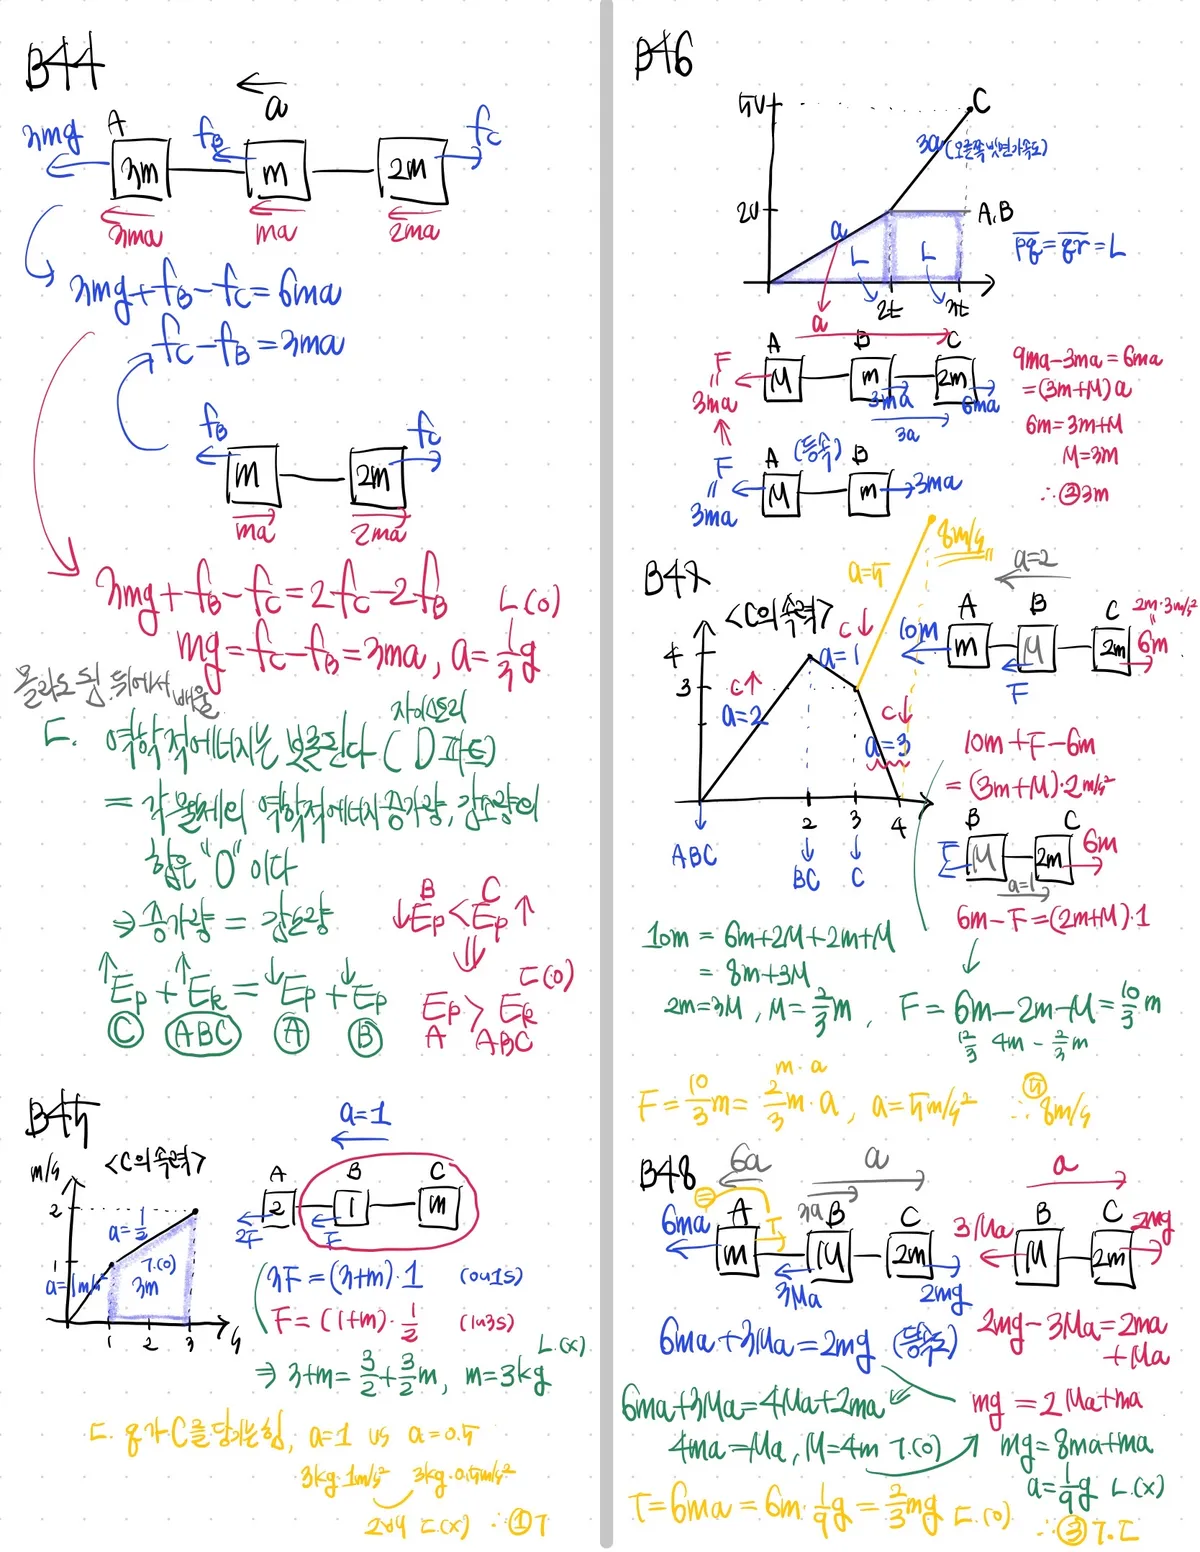 B44
a
A
3mg
fB
fC
3m
m
2m
3ma
ma
2ma
3mg+fB-fC=6ma
fC-fB=3ma
fB
fC
m
2m
ma
2ma
3mg+fB-fC=2fC-2fB
ㄴ(0)
mg=fC-fB=3ma, a=1/3g
몰라도 됨. 뒤에서 배움
자이스토리
ㄷ. 역학적에너지는 보존된다 (D파트)
= 각 물체의 역학적에너지 증가량, 감소량의
합은 "0"이다
⇒ 증가량 = 감소량
↑Ep+↑Ek=↓Ep+↓Ep
C ABC A B
B C
↓Ep<Ep↑
⇓
ㄷ(0)
Ep>Ek
A ABC
B45
m/s
<C의 속력>
2
a=1/2
1
a=1m/s²
ㄱ.(0)
3m
1 2 3 s
a=1
A B C
2 1 m
2F F
3F=(3+m)·1 (0~1s)
F=(1+m)·1/2 (1~3s)
ㄴ(x)
⇒ 3+m=3/2+3/2m, m=3kg
ㄷ. q가 C를 당기는 힘, a=1 vs a=0.5
3kg·1m/s² 3kg·0.5m/s²
2배 ㄷ(x) ∴①ㄱ
B46
5v
C
3a (오른쪽 빗면 가속도)
2v
A,B
a
L L
pq=qr=L
2t 3t
a
A B C
F
M m 2m
3ma
3ma
6ma
3a
9ma-3ma=6ma
=(3m+M)a
6m=3m+M
M=3m
∴②3m
F
A (등속) B
M m
3ma
3ma
B47
<C의 속력>
8m/s
a=5
4
3
C↓
a=1
C↑
a=2
C↓
a=3
2 3 4
ABC
BC
C
a=2
A B C
2m·3m/s²
10m
m M 2m
6m
F
10m+F-6m
=(3m+M)·2m/s²
B C
F M 2m 6m
a=1
6m-F=(2m+M)·1
10m = 6m+2M+2m+M
= 8m+3M
2m=3M, M=2/3m, F=6m-2m-M=10/3m
12/3 4m-2/3m
m·a
F=10/3m=2/3m·a, a=5m/s² ∴⑤8m/s
B48
6a
a
6ma
A
T
3a
B
C
m M 2m
3Ma
2mg
a
3Ma
B C
2mg
M 2m
6ma+3Ma=2mg (등속도)
2mg-3Ma=2ma
+Ma
6ma+3Ma=4Ma+2ma
mg=2Ma+ma
4ma=Ma, M=4m ㄱ.(0)
mg=8ma+ma
a=1/9g ㄴ.(x)
T=6ma=6m·1/9g=2/3mg ㄷ.(0)
∴③ㄱ.ㄷ